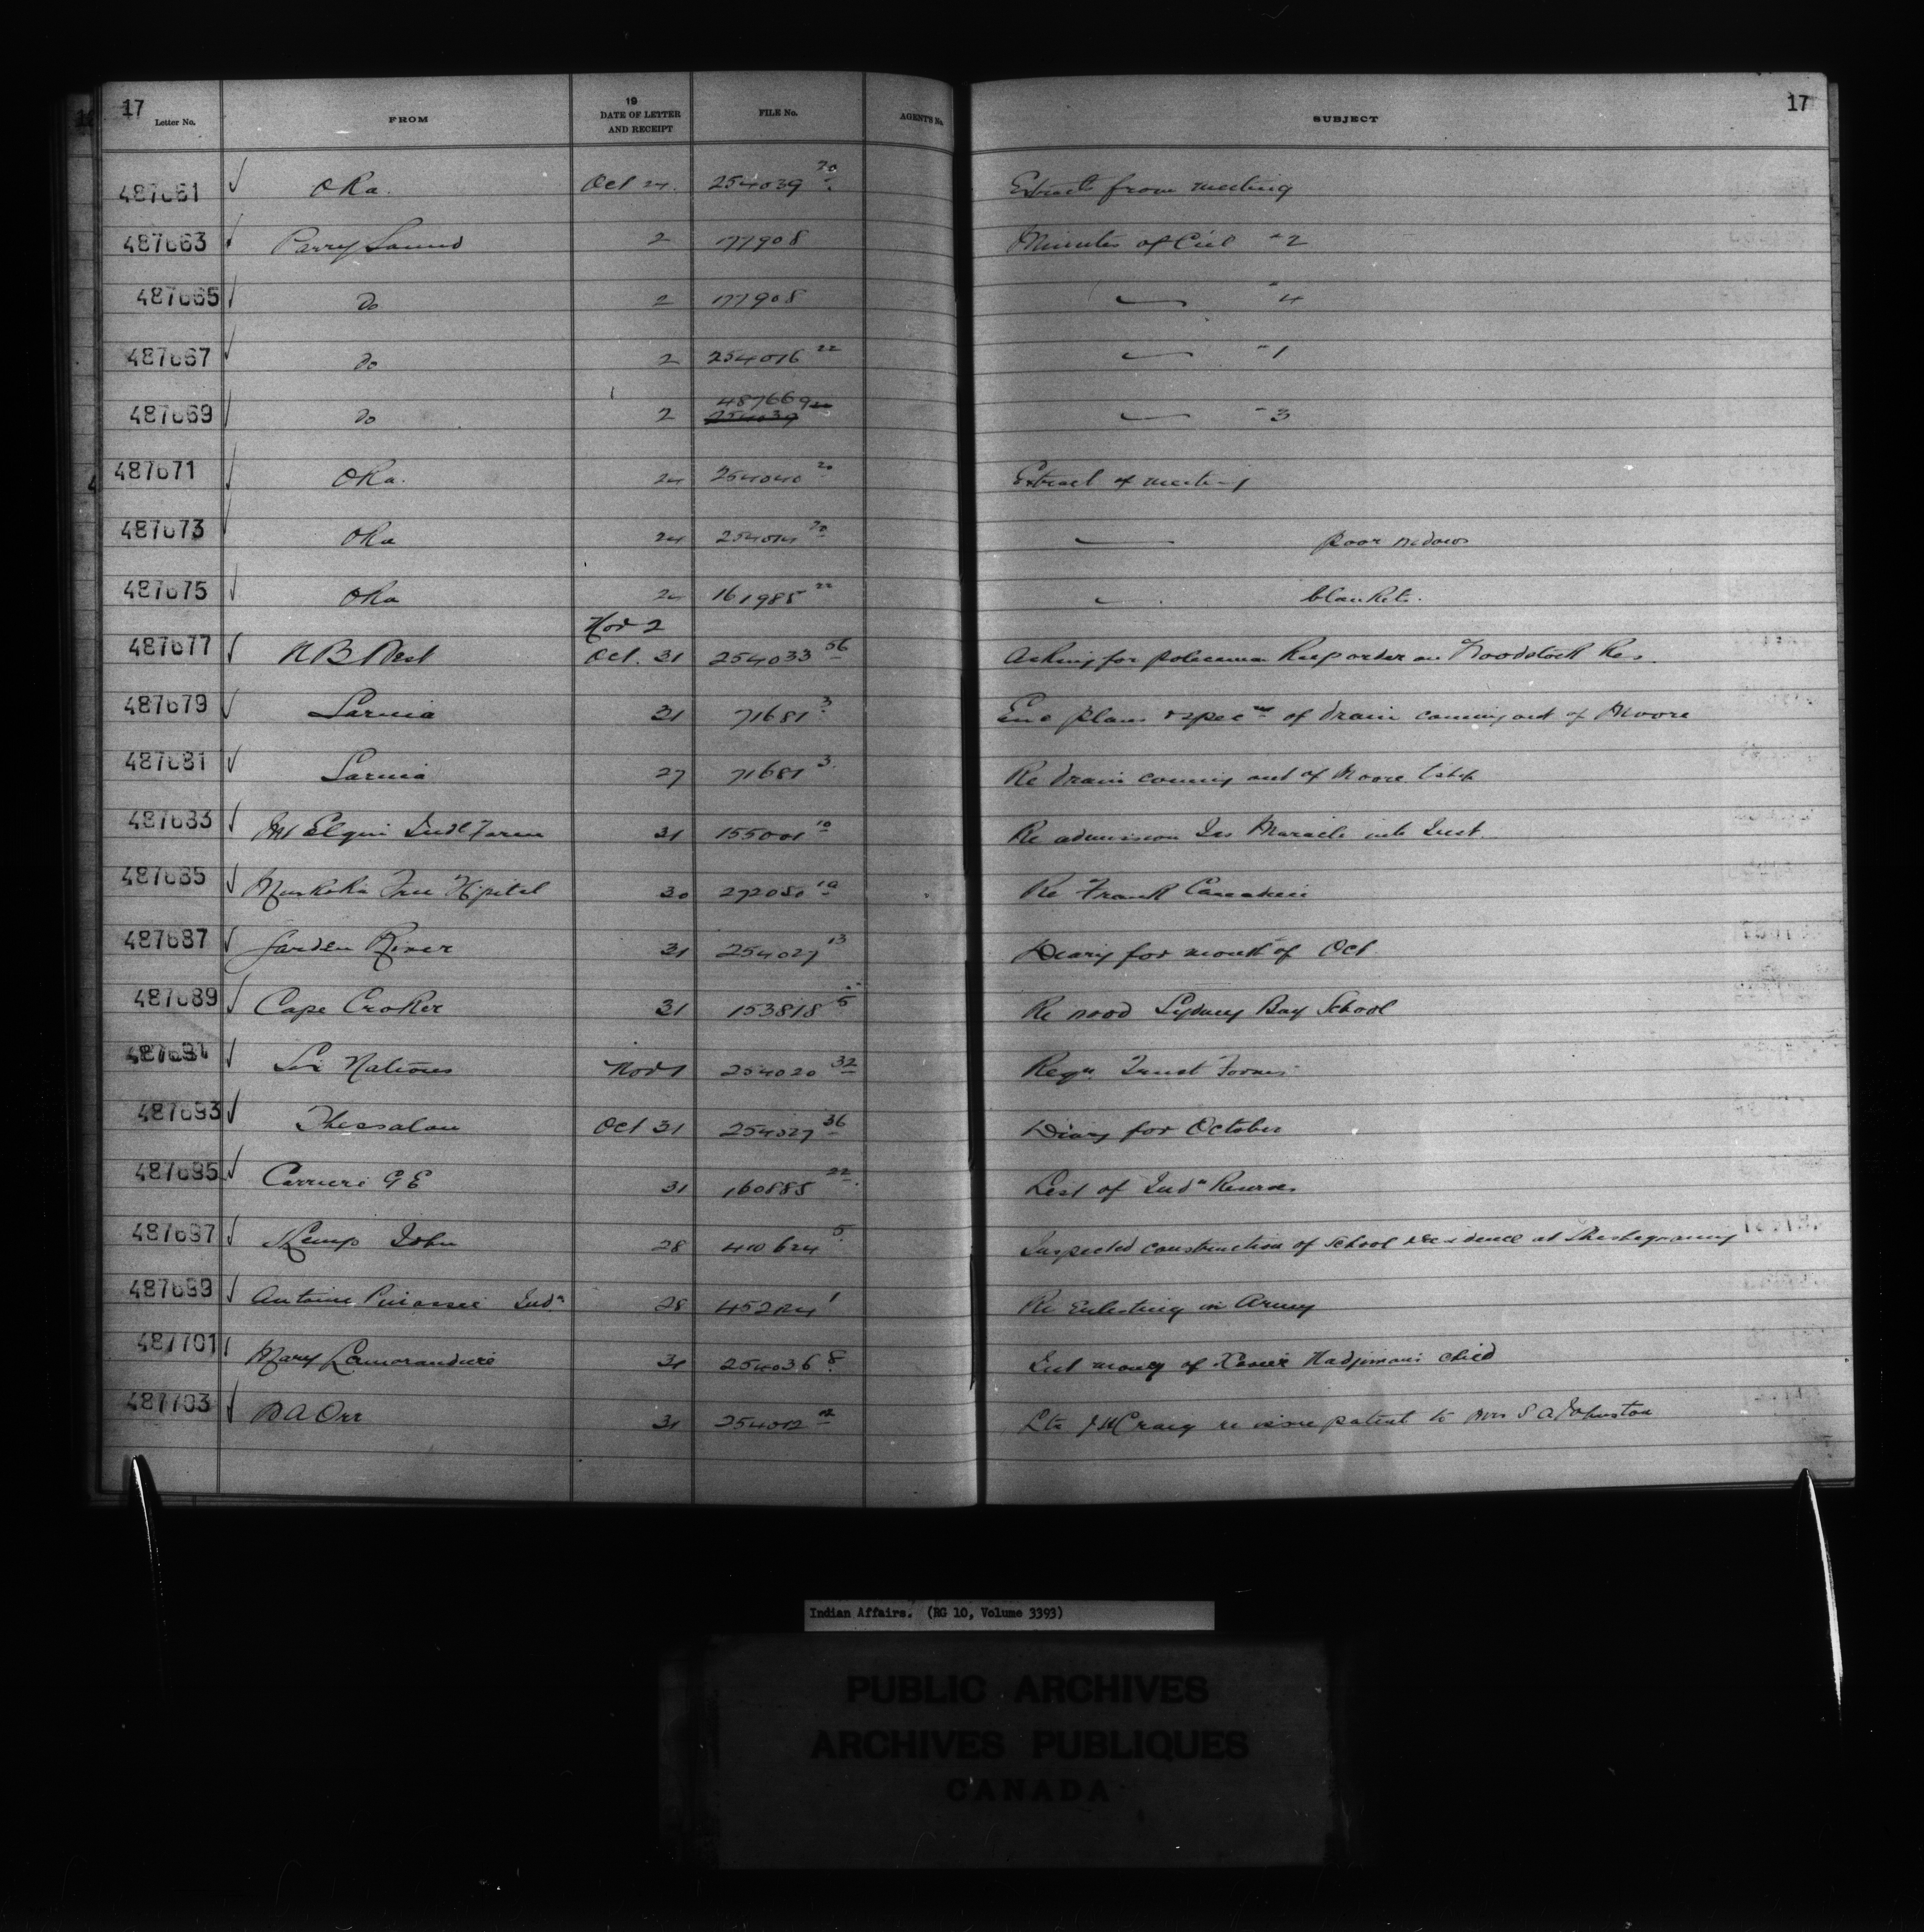 17 17
Letter No. FROM 19 DATE OF LETTER AND RECEIPT FILE No. AGENT'S No. SUBJECT
487661 Oka. Oct 24. 254039 20 Extract from meeting
487663 Parry Sound 2 177908 Minutes of Ccil "2
487665 Do 2 177908 "4
487667 Do 2 254016 22 "1
487669 Do 2 487669 254039 "3
487671 Oka. 24 254040 20 Extract of meeting
487673 Oka 24 254014 20 poor widows
487675 Oka 24 161985 22 blankets.
Nov 2
487677 N B West Oct. 31 254033 56 Asking for policeman Keep order on Woodstock Res.
487679 Sarnia 31 71681 3 Enc plans & spec ns of drain coming out of Moore
487681 Sarnia 27 71681 3 Re drain coming out of Moore tshp
487683 Mt Elgin Indl Farm 31 155001 10 Re admission Jas Maracle into Inst.
487685 Muskoka Free Hspital 30 272080 10 Re Frank
487687 Garden River 31 254027 13 Diary for month of Oct
487689 Cape Croker 31 153818 5 Re wood Sydney Bay School
487691 Six Nations Nov 1 254020 32 Reqn. Trust Forms
487693 Thessalon Oct 31 254027 36 Diary for October
487695 Carriere G E 31 160885 22 List of Indn Reserves
487697 Kemp John 28 410624 5 Inspected construction of School residence at Sheshegwaning
487699 Antoine Indn 28 1 Re Enlisting in Army
487701 Mary Lamorandiere 31 254036 8 Int money of Xavier child
487703 D A Orr 31 254012 12 Ltr J McCraig re issue patent to Mrs S A Johnston
Indian Affairs. (RG 10, Volume 3393)
PUBLIC ARCHIVES
ARCHIVES PUBLIQUES
CANADA